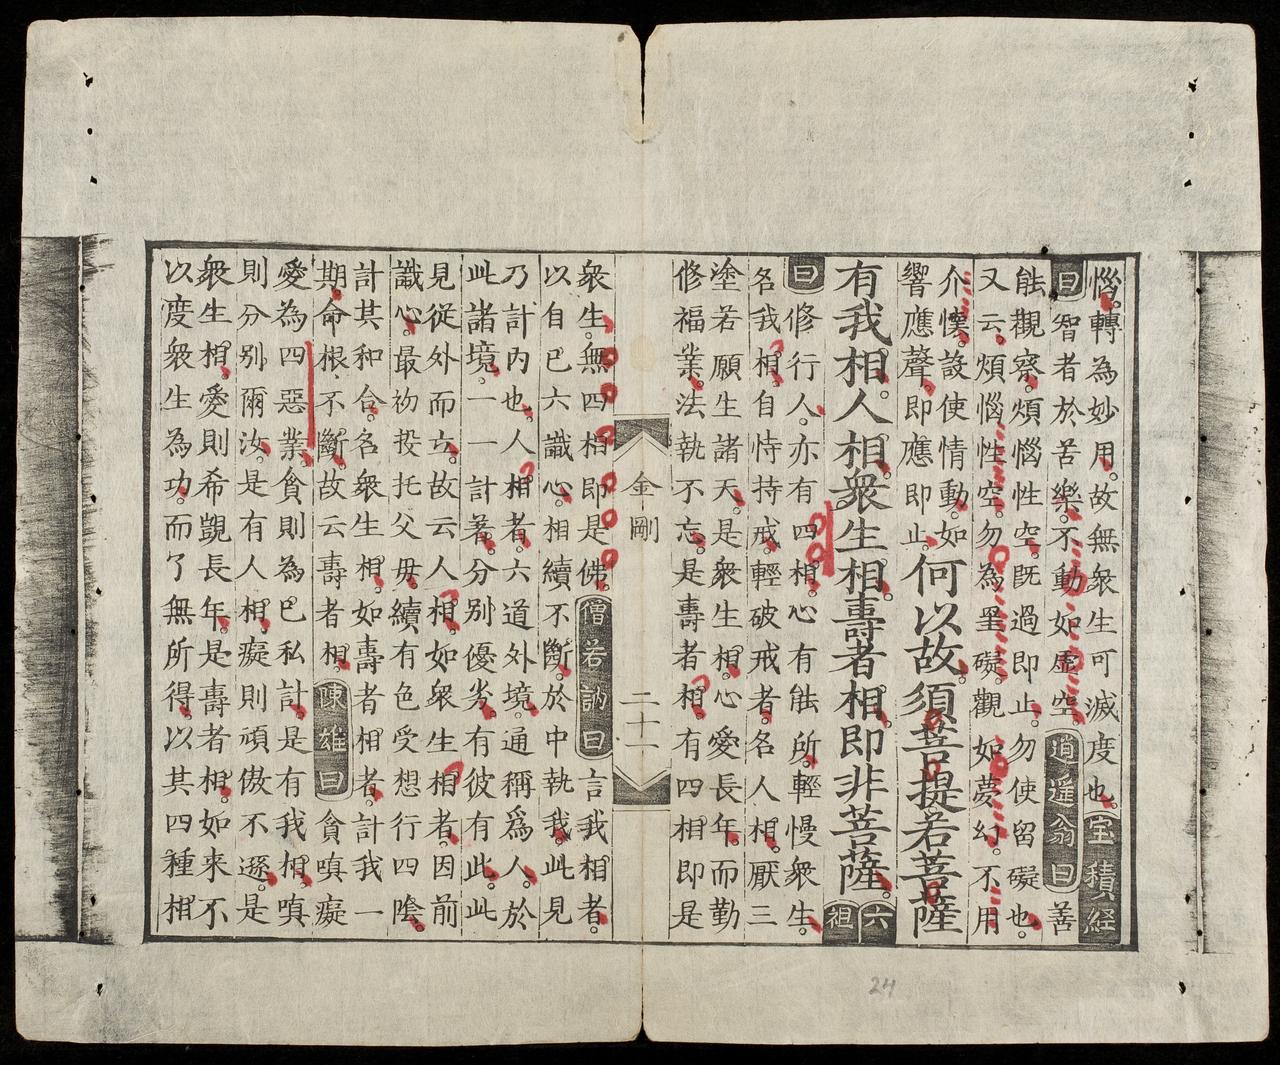 惱轉為妙用故無衆生可滅度也宝積経
曰智者於苦樂不動如虚空逍遥翁曰善
能觀察煩惱性空旣過即止勿使留礙也
又云煩惱性空勿為罣礙觀如夢幻不用
介懷設使情動如
響應聲即應即止何以故須菩提若菩薩
有我相人相衆生相壽者相即非菩薩六祖
曰修行人亦有四相心有能所輕慢衆生
名我相自恃持戒輕破戒者名人相厭三
塗苦願生諸天是衆生相心愛長年而勤
修福業法執不忘是壽者相有四相即是
金剛
二十一
衆生無四相即是佛僧若訥曰言我相者
以自已六識心相續不斷於中執我此見
乃計内也人相者六道外境通稱爲人於
此諸境一一計著分别優劣有彼有此此
見從外而立故云人相如衆生相者因前
識心最初投托父毋續有色受想行四陰
計其和合名衆生相如壽者相者計我一
期命根不斷故云壽者相陳雄曰貪嗔癡
愛為四惡業貪則為已私計是有我相嗔
則分别爾汝是有人相癡則頑傲不遜是
衆生相愛則希覬長年是壽者相如来不
以度衆生為功而了無所得以其四種相
24